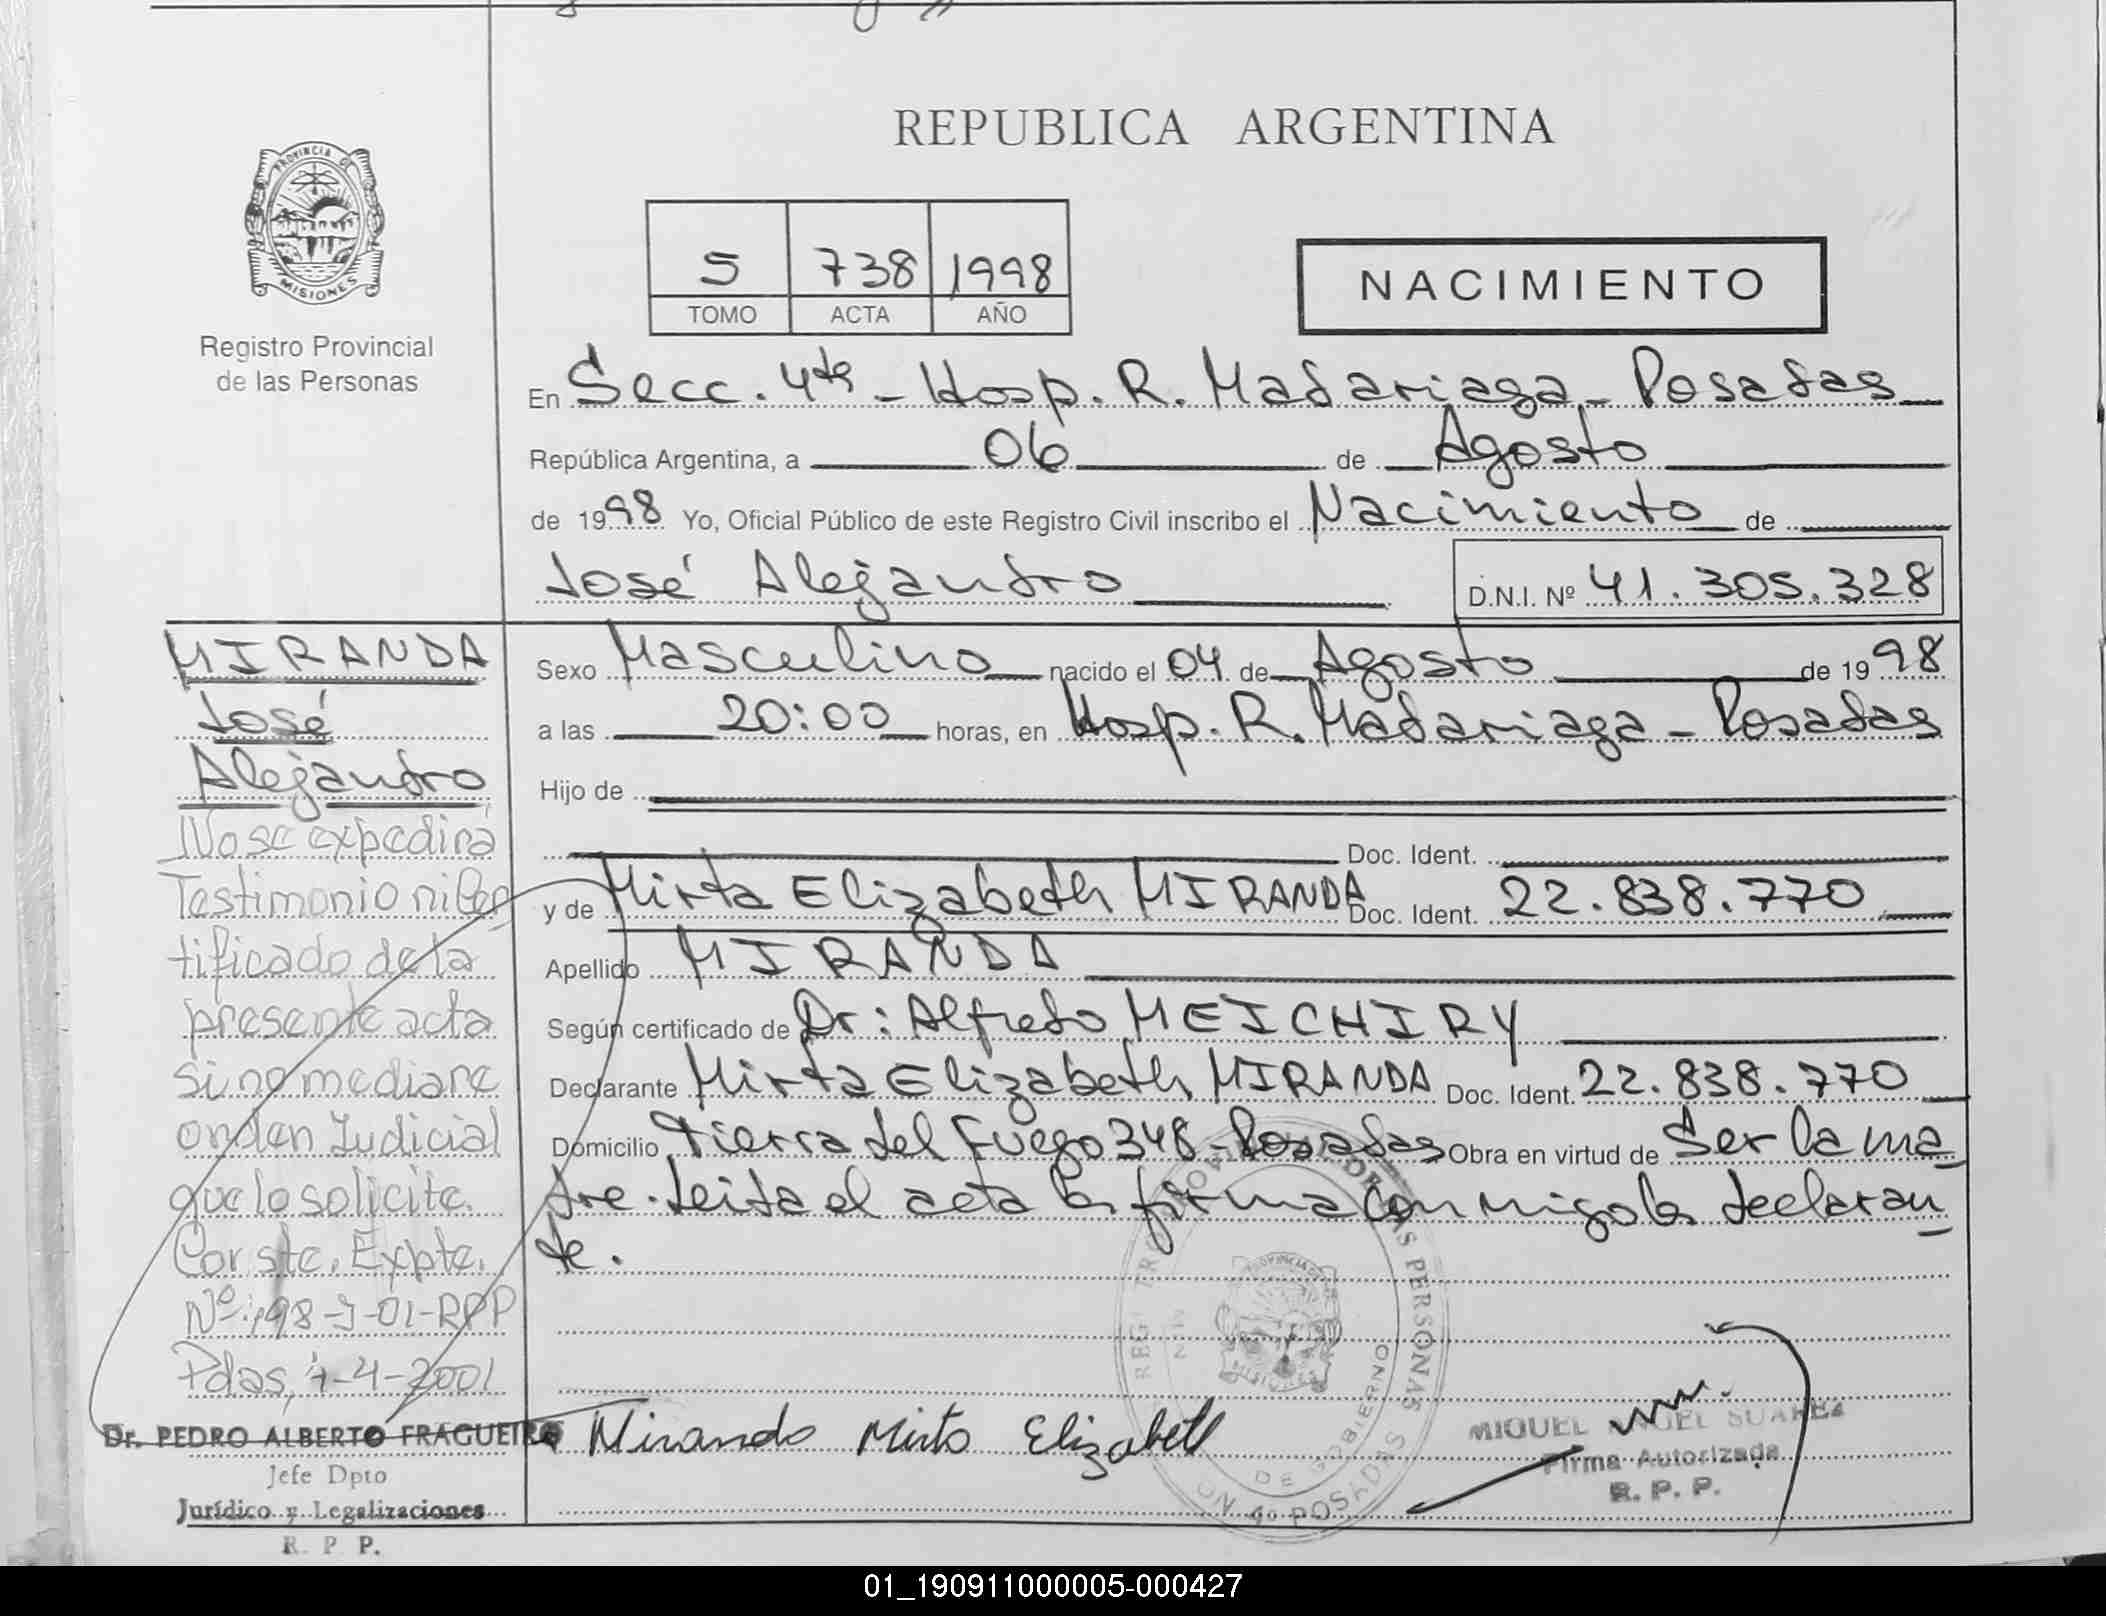 REPUBLICA ARGENTINA
PROVINCIA DE
MISIONES
Registro Provincial
de las Personas
5 738 1998
TOMO ACTA AÑO
NACIMIENTO
En Secc. 4ta - Hosp. R. Madariaga - Posadas
República Argentina, a 06 de Agosto
de 1998 Yo, Oficial Público de este Registro Civil inscribo el Nacimiento de
José Alejandro D.N.I. Nº 41.305.328
MIRANDA
José
Alejandro
No se expedirá
Testimonio ni Cer
tificado de la
presente acta
si no mediare
orden Judicial
que lo solicite.
Corste. Expte.
Nº 198-J-01-RPP
Pdas, 4-2001
Dr. PEDRO ALBERTO FRAGUEIRO
Jefe Dpto
Jurídico y Legalizaciones
R. P. P.
Sexo Masculino nacido el 04 de Agosto de 1998
a las 20:00 horas, en Hosp. R. Madariaga - Posadas
Hijo de
Doc. Ident.
y de Mirta Elizabeth MIRANDA Doc. Ident. 22.838.770
Apellido MIRANDA
Según certificado de Dr: Alfredo MEICHIRY
Declarante Mirta Elizabeth MIRANDA Doc. Ident. 22.838.770
Domicilio Tierra del Fuego 348 - Posadas Obra en virtud de Ser la ma
dre. Leida el acta la firma conmigo la declaran
te.
Miranda Mirta Elizabeth
DE GOBIERNO
POSADAS
PERSONAS
MIGUEL ANGEL SUAREZ
Firma Autorizada
R. P. P.
01_190911000005-000427